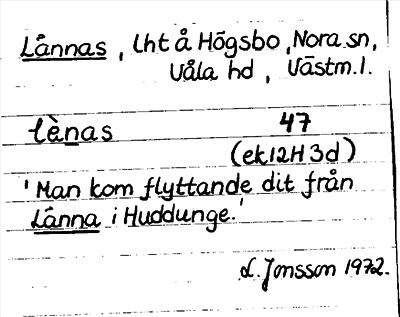 Lännas, lht å Högsbo, Nora sn,
Våla hd, Västm. l.
lènas 47
(ek 12H 3d)
'Man kom flyttande dit från
Länna i Huddunge.'
L. Jonsson 1972.